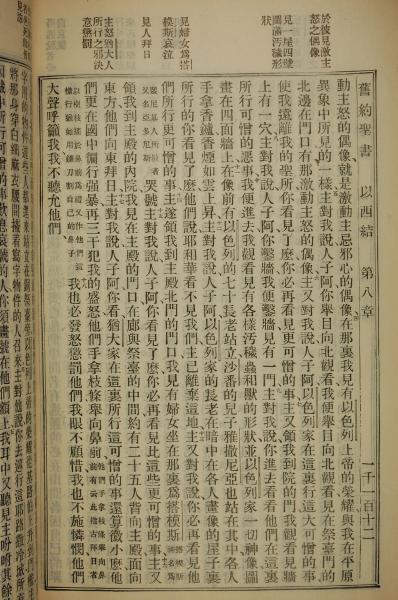 舊約聖書 以西結 第八章 一千一百十二
於彼見激主
怒之偶像
見一屋四壁
圖滿汚穢形
狀
見婦女爲搭
模斯哀泣
見人拜日
主怒猶大人
所行之邪決
意懲罰
動主怒的偶像、就是激動主忌邪心的偶像、在那裏我見有以色列上帝的榮耀與我在平原
異象中所見的一樣主對我說人子阿你舉目向北觀看我便舉目向北觀看見在祭臺門的
北邊在門口有那激動主怒的偶像主又對我說人子阿以色列家在這裏行這大可憎的事
使我遠離我的聖所你看見了麽你必再看見更可憎的事主又領我到院的門我觀看見牆
上有一穴主對我說人子阿你鑿牆我便鑿牆見有一門主對我說你進去看看他們在這裏
所行可憎的惡事我便進去我觀看見有各樣汚穢蟲和獸的形狀並以色列家一切神像圖
畫在四面牆上在像前有以色列的七十長老站立沙番的兒子雅撒尼亞也站在其中各人
手拿香鑪香煙如雲上昇主對我說人子阿以色列家的長老在暗中在各人畫像的屋子裏
所行的你看見了麽他們說耶和華看不見我們主已離棄這地主又對我說你必再看見他
們所行更可憎的事主遂領我到主殿北門的門口我見有婦女坐在那裏爲搭模斯搭模斯神名爲
腓尼基人所敬者又名亞多尼斯哭號主對我說人子阿你看見了麽你必再看見比這些更可憎的事主又
領我到主殿的內院我見在主殿的門口在廊與祭臺的中間約有二十五人背向主殿面向
東方他們向東拜日主對我說人子阿你看見了麽猶大家在這裏所行這可憎的事還算微小麽他
們更在國中徧行強暴再三干犯我的盛怒他們手拿枝條舉向鼻前
我也必發怒懲罰他們我眼不顧惜我也不施憐憫他們
大聲呼籲我我不聽允他們